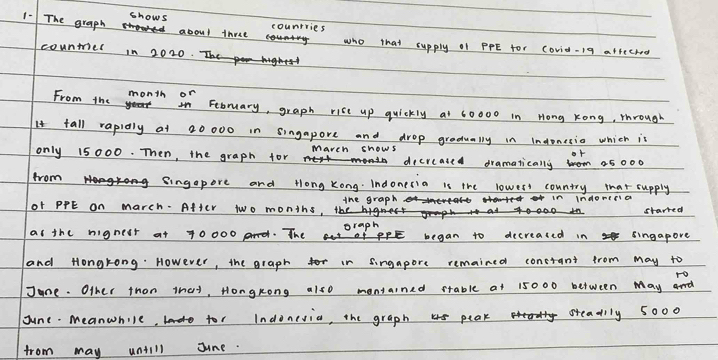 1- The graph showed shows about three country countries who that supply of PPE for Covid-19 affected
countries in 2020. The per highest
From the year month in or February, graph rise up quickly at 60000 in Hong Kong, through
it fall rapidly at 20000 in Singapore and drop gradually in Indonesia which is
only 15000. Then, the graph for next month March shows decreased dramatically from of 25000
from Hongkong Singapore and Hong Kong. Indonesia is the lowest country that supply
of PPE on march. After two months, the highest graph is at 70000 in the graph of increase started at in Indonesia started
as the highest at 70000 and. The set of PPE graph began to decreased in Singapore
and Hongkong. However, the graph for in Singapore remained constant from May to
June. Other than that, Hongkong also mantained stable at 15000 between May and to
June. Meanwhile, for Indonesia, the graph peak steadly steadily 5000
from may untill June.